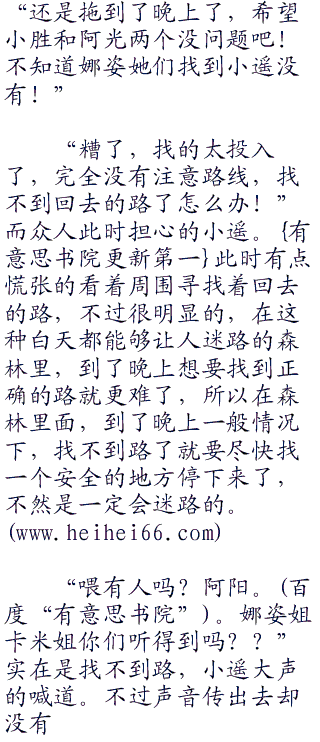 “还是拖到了晚上了，希望
小胜和阿光两个没问题吧！
不知道娜姿她们找到小遥没
有！”
“糟了，找的太投入
了，完全没有注意路线，找
不到回去的路了怎么办！”
而众人此时担心的小遥。{有
意思书院更新第一}此时有点
慌张的看着周围寻找着回去
的路，不过很明显的，在这
种白天都能够让人迷路的森
林里，到了晚上想要找到正
确的路就更难了，所以在森
林里面，到了晚上一般情况
下，找不到路了就要尽快找
一个安全的地方停下来了，
不然是一定会迷路的。
(www.heihei66.com)
“喂有人吗？阿阳。(百
度“有意思书院”)。娜姿姐
卡米姐你们听得到吗？？”
实在是找不到路，小遥大声
的喊道。不过声音传出去却
没有